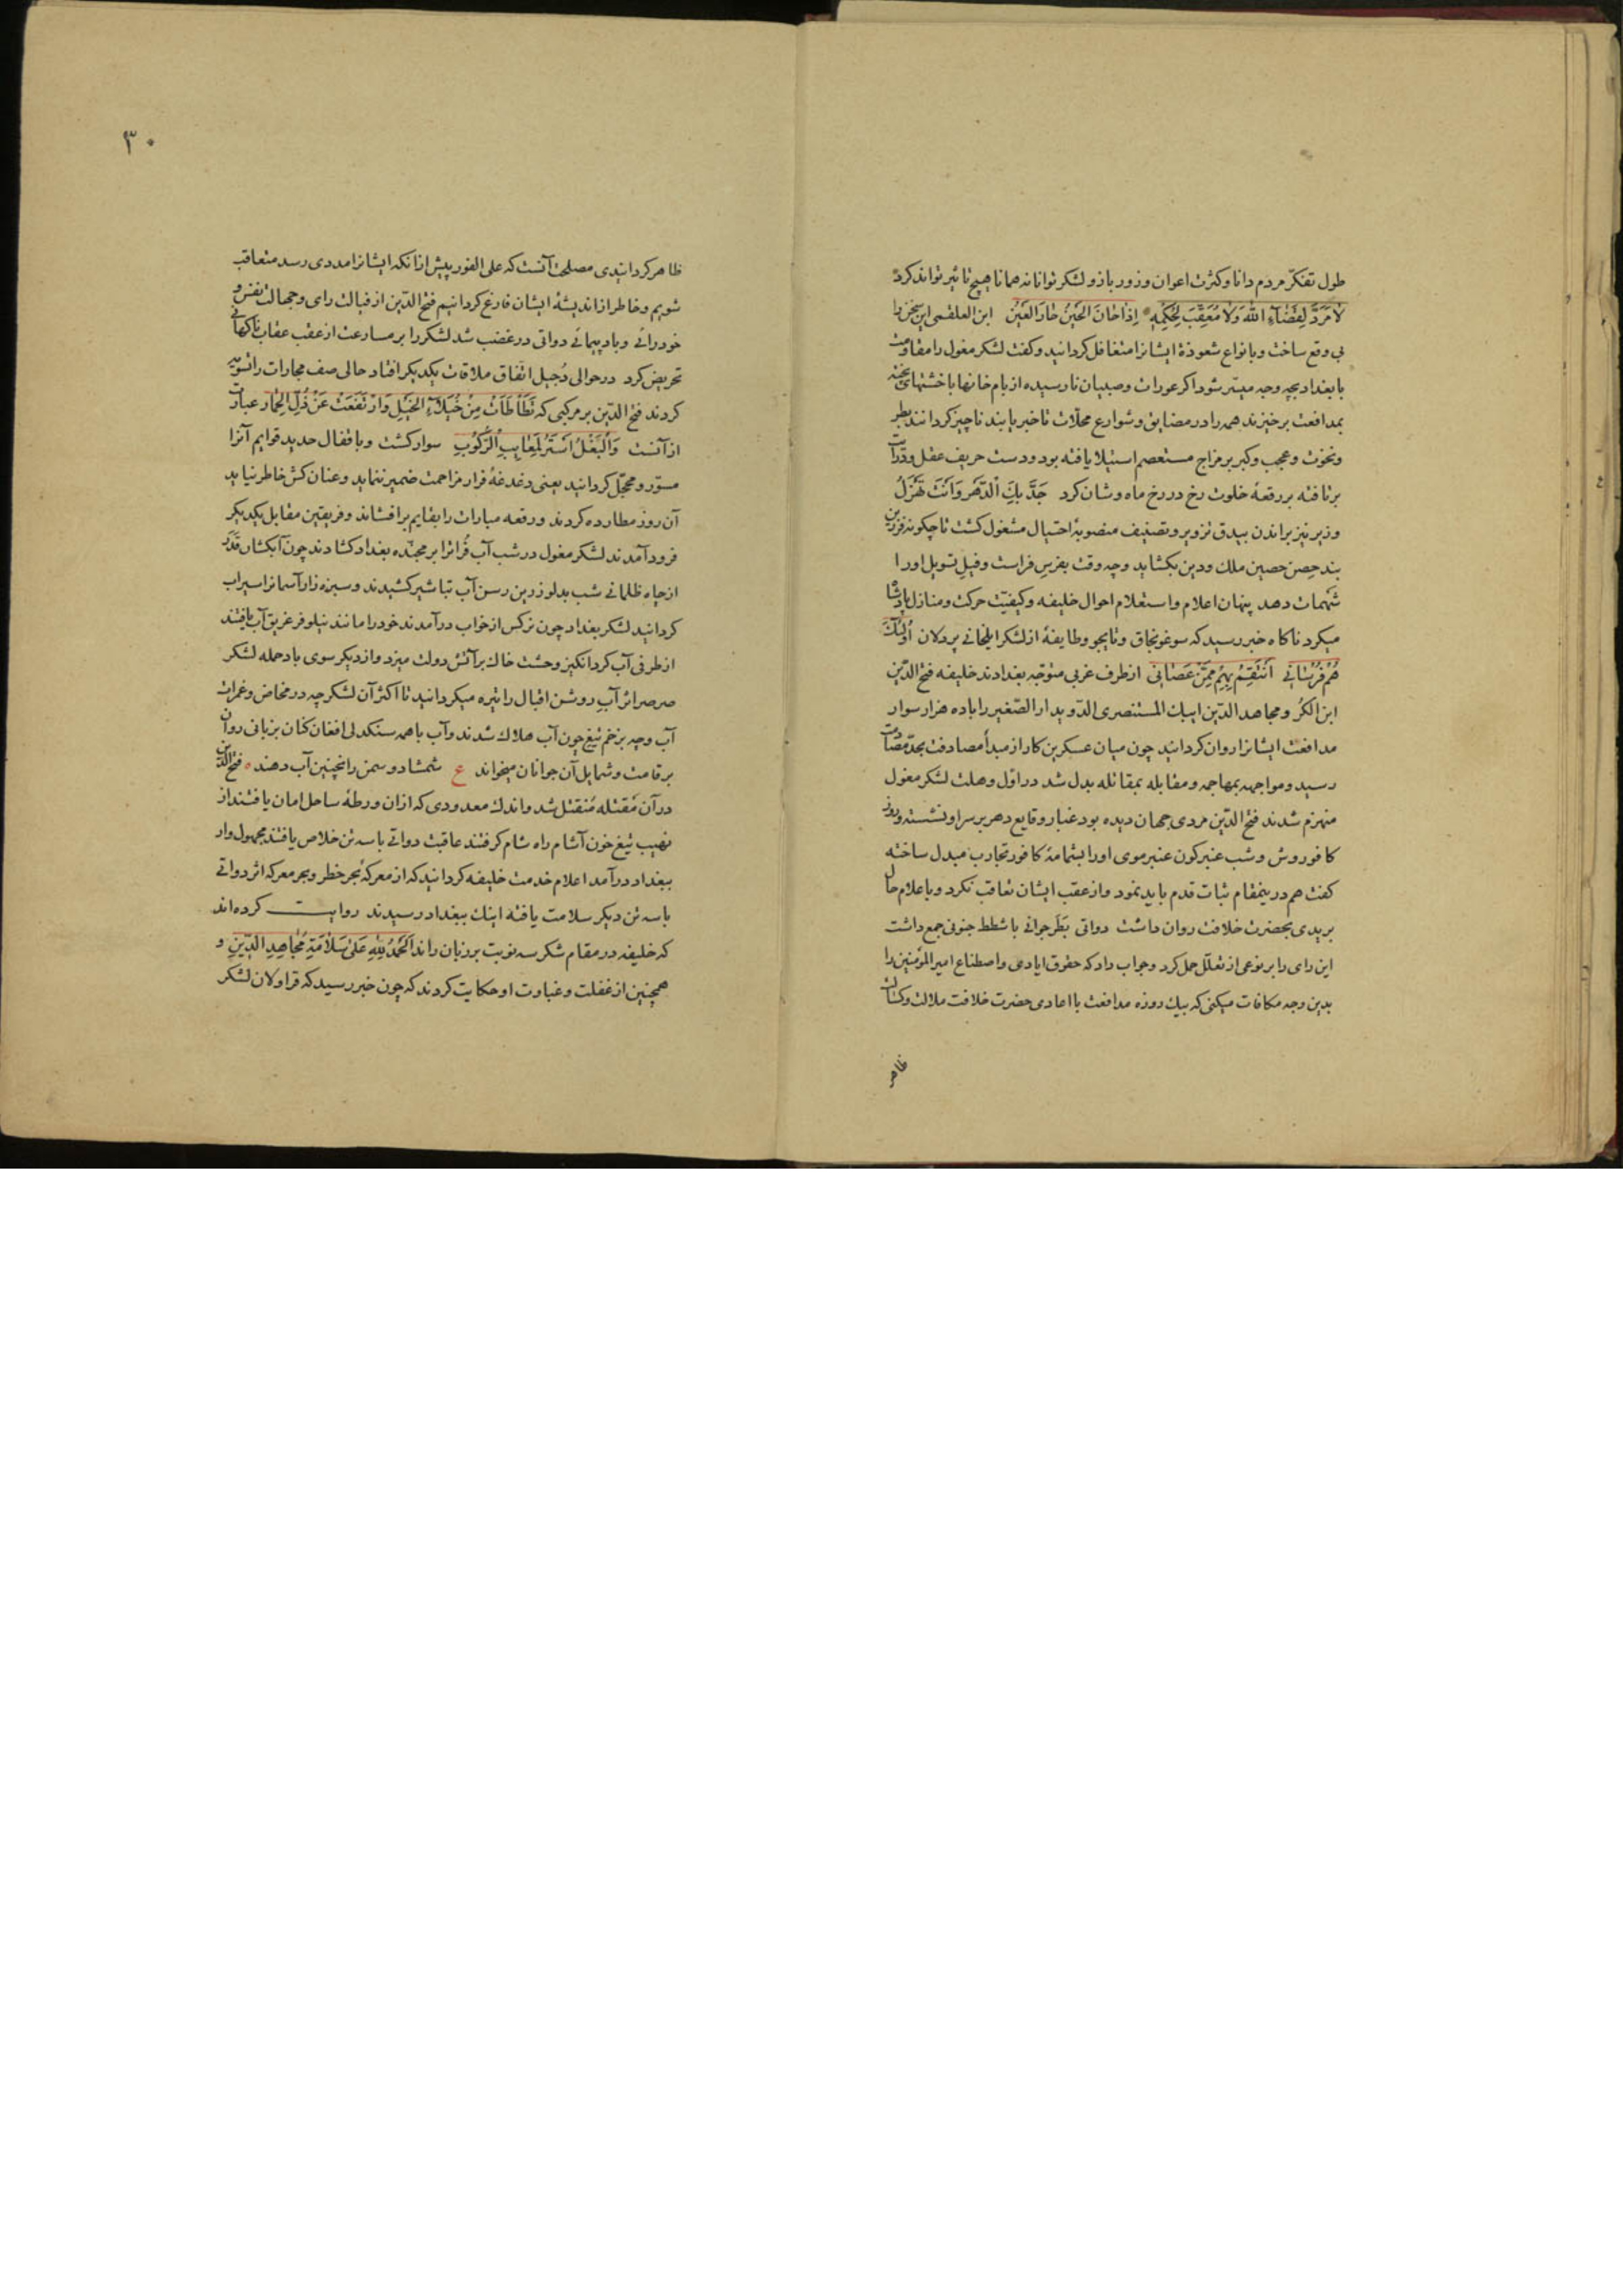 طول تفکّر مردم دانا و کثرت اعوان و زور بازو لشکر توانا نه همانا هیچ تاثیر تواند کرد
لَا مَرَدَّ لِقَضَآءِ اللّٰهِ وَلَا مُعَقِّبَ لِحُکْمِهِ اِذَا حَانَ الحَیْنُ حَارَ العَیْنُ ابن العلقمی این سخن را
بی وقع ساخت و بانواع شعوذة ایشانرا متغافل کردانید و کفت لشکر مغول را مقاومت
با بغداد بچه وجه میسّر شود اکر عورات و صبیان نارسیده از بام خانها با خشتهای پخته
بمدافعت برخیزند همه را در مضایق و شوارع محلّات تا خبر یابند ناچیز کردانند بطر
و نخوت و عجب و کبر بر مزاج مستعصم استیلا یافته بود و دست حریف عقل و درایت
برتافته بر رقعهٔ خلوت رخ در رخ ماه وشان کرد جَدَّ بِكَ الدَّهرُ وَاَنْتَ تَهْزِلُ
وزیر نیز براندن بیدق تزویر و تصنیف منصوبهٔ احتیال مشغول کشت تا چکونه فرزین
بند حِصن حصین ملك و دین بکشاید و چه وقت بفرسِ فراست و فیلِ تسویل او را
شهمات دهد پنهان اعلام و استعلام احوال خلیفه و کیفیّت حرکت و منازل پادشا
میکرد ناکاه خبر رسید که سوغونجاق و تایجو و طایفهٔ از لشکر ایلخانی پردلان اُولٰئِكَ
هُمْ فُرْسَانِی اَنْتَقِمُ بِهِمْ مِمَّنْ عَصَانِی از طرف غربی متوجّه بغدادند خلیفه فتح الدّین
ابن الکُر و مجاهد الدّین ایبك المستنصری الدّویدار الصّغیر را با ده هزار سوار
مدافعت ایشانرا روان کردانید چون میان عسکرین کار از مبدأ مصادفت بحدّ مصادمت
رسید و مواجهه بمهاجمه و مقابله بمقاتله بدل شد در اوّل وهلت لشکر مغول
منهزم شدند فتح الدّین مردی جهان دیده بود غبار وقایع دهر بر سر او نشسته و روز
کافور وش و شب عنبرکون عنبر موی او را بشمامهٔ کافور تجارب مبدل ساخته
کفت هم درینمقام ثبات قدم باید نمود و از عقب ایشان تعاقب نکرد و باعلام حال
بریدی بحضرت خلافت روان داشت دواتی بَطَر جوانی با شطط جنونی جمع داشت
این رای را بر نوعی از تعلّل حمل کرد و جواب داد که حقوق ایادی و اصطناع امیر المؤمنین را
بدین وجه مکافات میکنی که بیك روزه مدافعت با اعادی حضرت خلافت ملالت و کسالت
ظاهر
۳۰
ظاهر کردانیدی مصلحت آنست که علی الفور پیش از انکه ایشانرا مددی رسد متعاقب
شویم و خاطر از اندیشهٔ ایشان فارغ کردانیم فتح الدّین از فیالت رای و جهالت نفس و
خودرائی و بادپیمائی دواتی در غضب شد لشکر را بر مسارعت از عقب عقاب ناکهانی
تحریض کرد در حوالی دُجیل اتفاق ملاقات یکدیکر افتاد حالی صف مجارات راتسویه
کردند فتح الدّین بر مرکبی که تَطَأطَأتْ مِنْ خُیَلَاءِ الخَیْلِ وَارْتَفَعَتْ عَنْ ذُلِّ الحِمَار عبارت
از آنست وَالبَغْلُ اَسْتَرُ لِمَعَایِبِ الرَّکُوبِ سوار کشت و باقفال حدید قوایم آنرا
مسوّر و محجّل کردانید یعنی دغدغهٔ فرار مزاحمت ضمیر ننماید و عنان کش خاطر نیاید
آن روز مطارده کردند و رقعه مبارات را بقایم برافشاند و فریقین مقابل یکدیکر
فرود آمدند لشکر مغول در شب آب فُراترا بر مجنّده بغداد کشادند چون آبکشان قَدَر
از چاه ظلمانی شب بدلو زرین رسن آب تباشیر کشیدند و سبزه زار آسمانرا سیراب
کردانید لشکر بغداد چون نرکس از خواب درآمدند خود را مانند نیلوفر غریق آب یافتند
از طرفی آب کردانکیز وحشت خاك بر آتش دولت میزد و از دیکر سوی باد حمله لشکر
صرصر اثر آبِ روشن اقبال را تیره میکردانید تا اکثر آن لشکر چه در مخاض و غمرات
آب و چه بزخم تیغ چون آب هلاك شدند و آب با همه سنکدلی افغان کنان بزبانی روان
بر قامت و شمایل آن جوانان میخواند ع شمشاد و سمن را نچنین آب دهند فتح الدّین
در آن مَقتله مُنقتل شد و اندك معدودی که ازان ورطهٔ ساحل امان یافتند از
نهیب تیغ خون آشام راه شام کرفتند عاقبت دواتی با سه تن خلاص یافتند مجهول وار
ببغداد درآمد اعلام خدمت خلیفه کردانید که از معرکهٔ بحر خطر و بحر معرکه اثر دواتی
با سه تن دیکر سلامت یافته اینك ببغداد رسیدند روایت کرده اند
که خلیفه در مقام شکر سه نوبت بر زبان راند اَلحَمْدُ لِلّٰهِ عَلیٰ سَلَامَةِ مُجَاهِدِ الدِّینِ و
همچنین از غفلت و غباوت او حکایت کردند که چون خبر رسید که قراولان لشکر